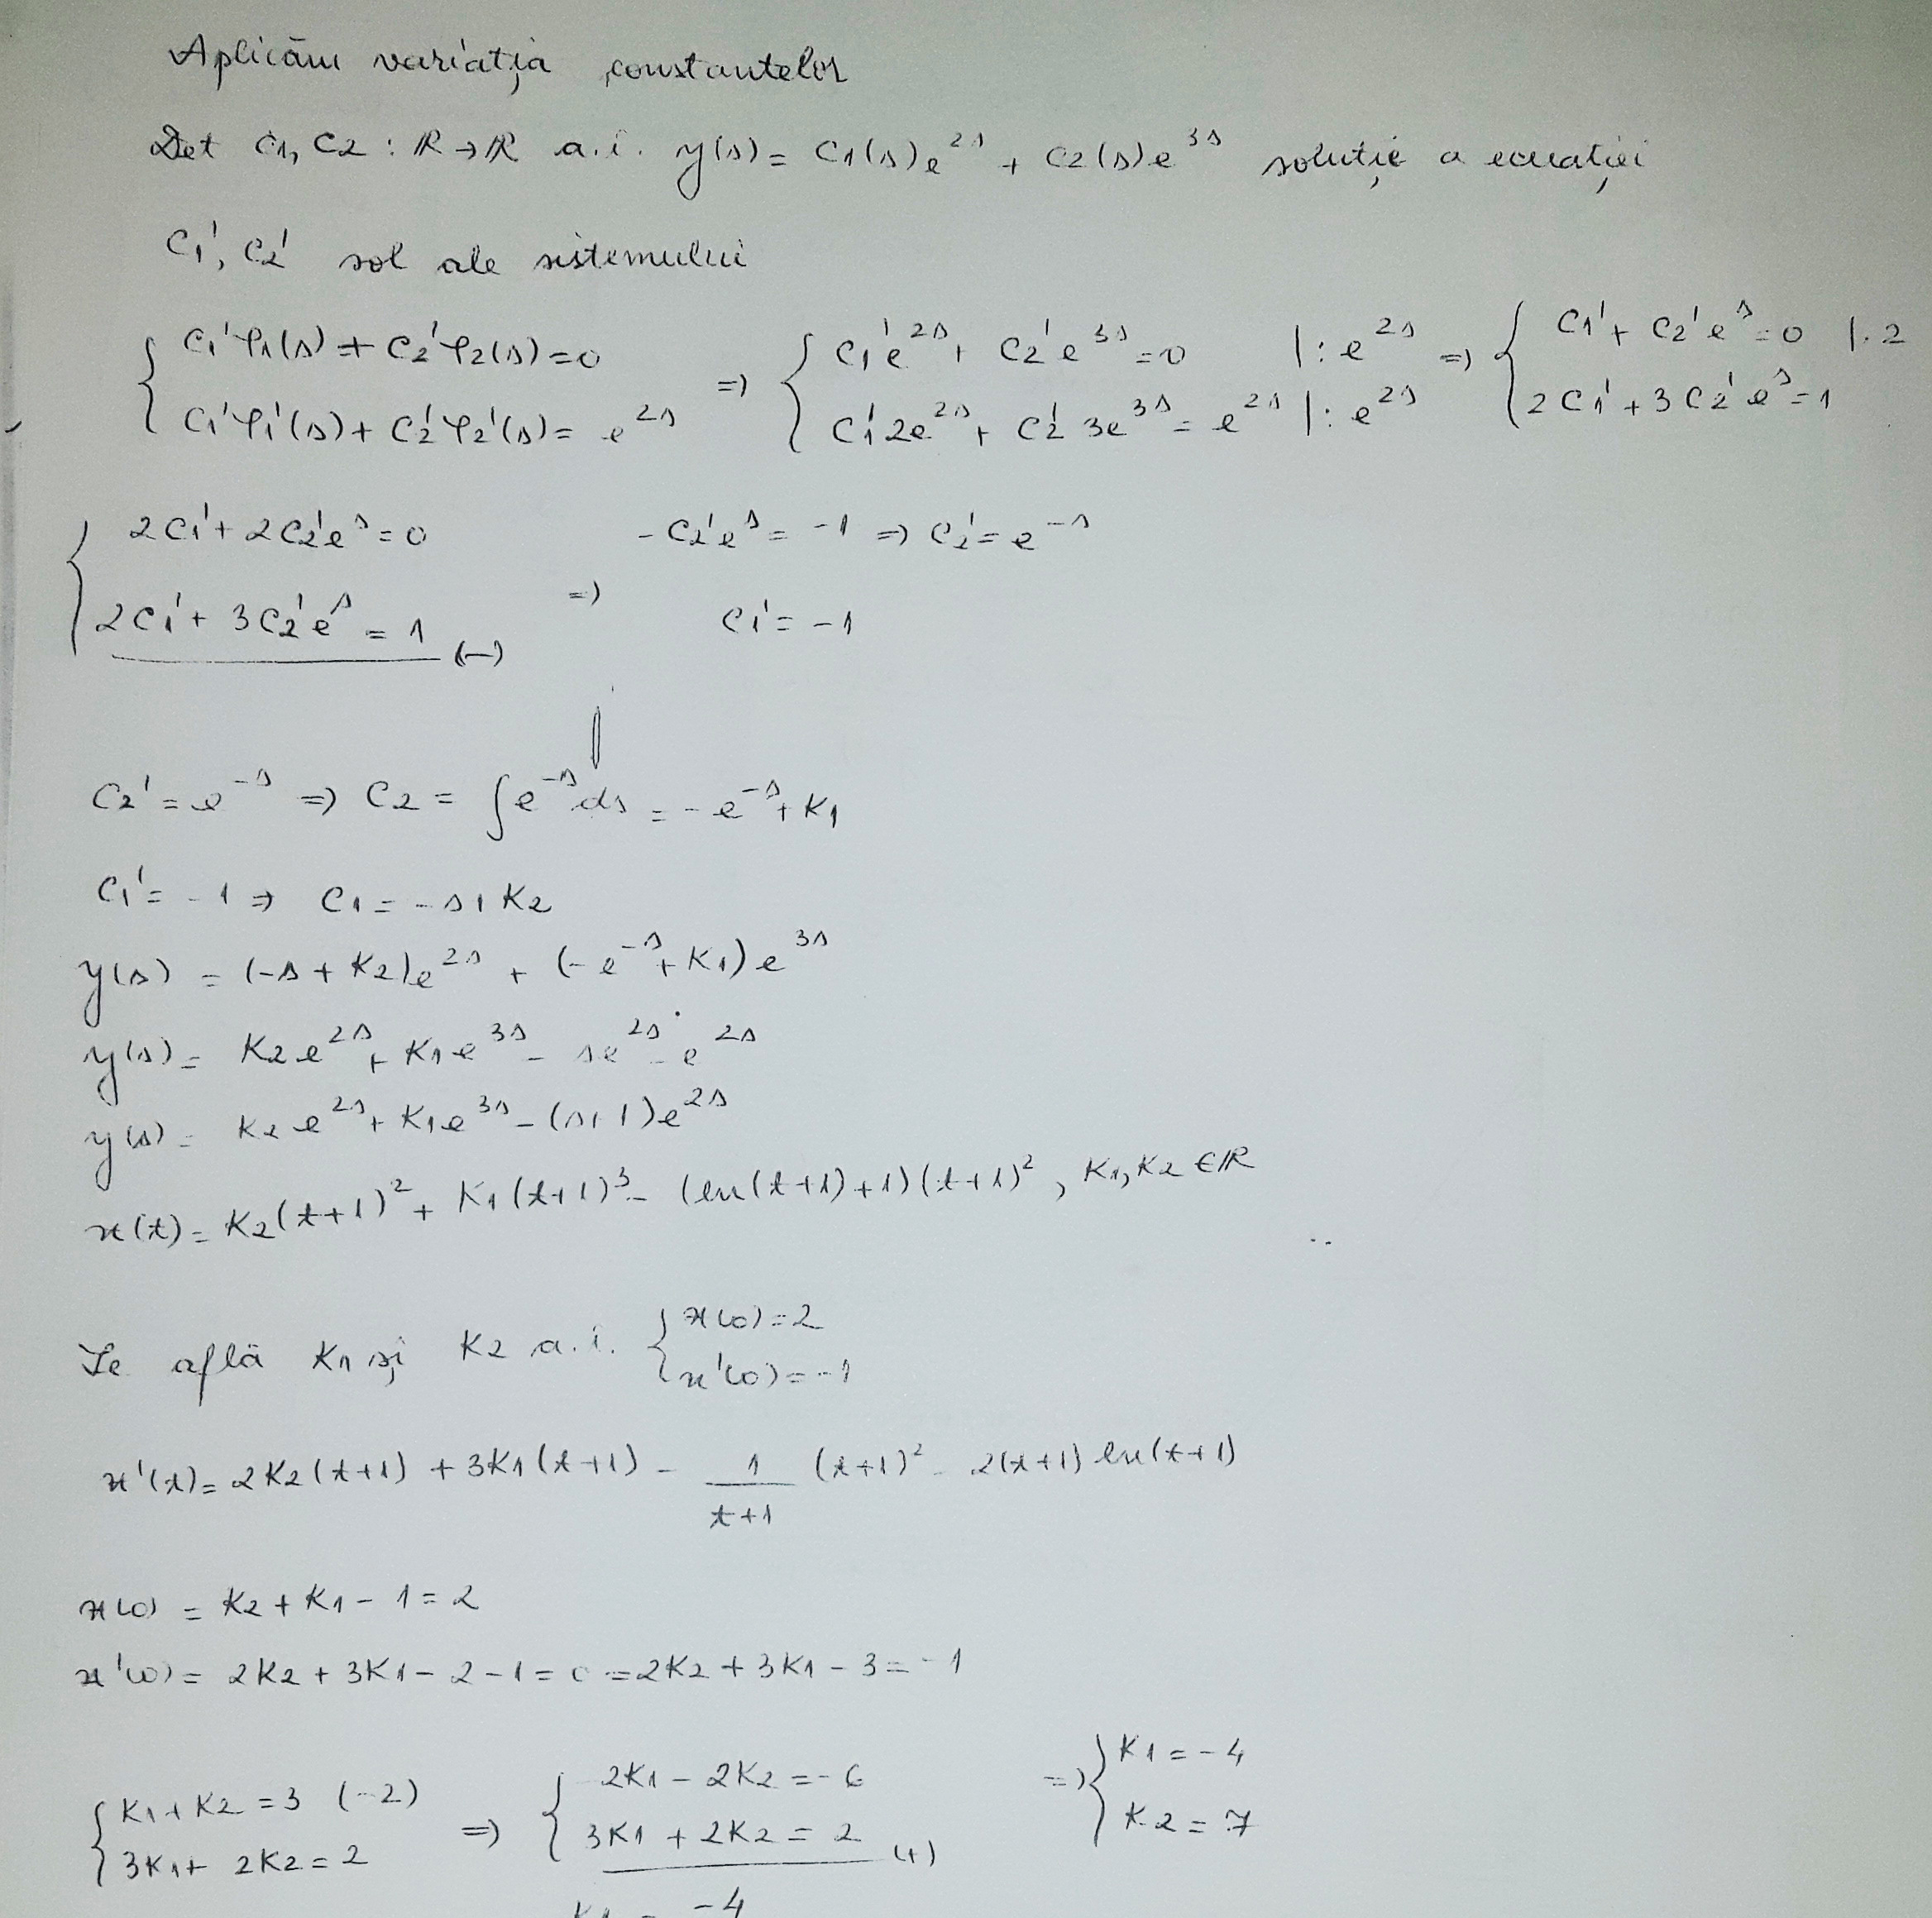 Aplicăm variația constantelor
Det C1, C2 : ℝ → ℝ a.î. y(s) = C1(s)e^{2s} + C2(s)e^{3s} soluție a ecuației
C1', C2' sol ale sistemului
{ C1'φ1(s) + C2'φ2(s) = 0 => { C1'e^{2s} + C2'e^{3s} = 0 |: e^{2s} => { C1' + C2'e^s = 0 |. 2
{ C1'φ1'(s) + C2'φ2'(s) = e^{2s} { C1'2e^{2s} + C2'3e^{3s} = e^{2s} |: e^{2s} { 2C1' + 3C2'e^s = 1
{ 2C1' + 2C2'e^s = 0 => -C2'e^s = -1 => C2' = e^{-s}
{ 2C1' + 3C2'e^s = 1 (-) C1' = -1
C2' = e^{-s} => C2 = ∫e^{-s}ds = -e^{-s} + K1
C1' = -1 => C1 = -s + K2
y(s) = (-s + K2)e^{2s} + (-e^{-s} + K1)e^{3s}
y(s) = K2e^{2s} + K1e^{3s} - se^{2s} - e^{2s}
y(s) = K2e^{2s} + K1e^{3s} - (s+1)e^{2s}
x(t) = K2(t+1)^2 + K1(t+1)^3 - (ln(t+1)+1)(t+1)^2, K1, K2 ∈ ℝ
Se află K1 și K2 a.î. { x(0) = 2
{ x'(0) = -1
x'(t) = 2K2(t+1) + 3K1(t+1) - 1/(t+1) (t+1)^2 - 2(t+1) ln(t+1)
x(0) = K2 + K1 - 1 = 2
x'(0) = 2K2 + 3K1 - 2 - 1 = 0 = 2K2 + 3K1 - 3 = -1
{ K1 + K2 = 3 (-2) => { 2K1 - 2K2 = -6 => { K1 = -4
{ 3K1 + 2K2 = 2 { 3K1 + 2K2 = 2 (+) { K2 = 7
K1 = -4